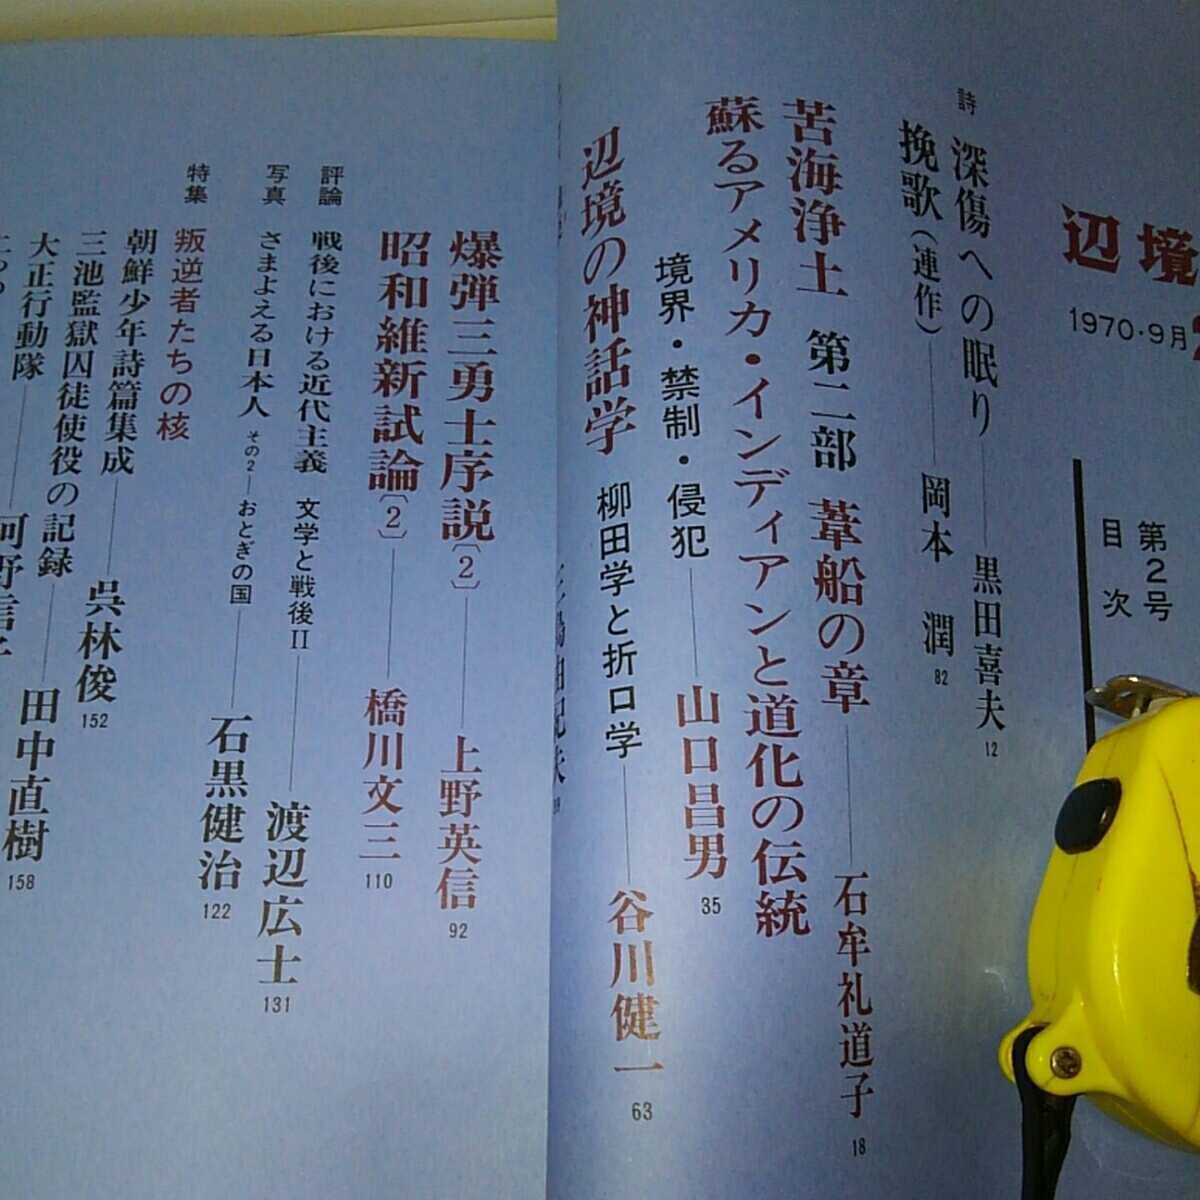 辺境
1970・9月
第2号
目次
詩
深傷への眠り――黒田喜夫 12
挽歌(連作)――岡本 潤 82
苦海浄土 第二部 葦船の章――石牟礼道子 18
蘇るアメリカ・インディアンと道化の伝統
境界・禁制・侵犯――山口昌男 35
辺境の神話学 柳田学と折口学――谷川健一 63
爆弾三勇士序説〔2〕――上野英信 92
昭和維新試論〔2〕――橋川文三 110
評論 戦後における近代主義 文学と戦後II――渡辺広士 131
写真 さまよえる日本人 その2―おとぎの国――石黒健治 122
特集 叛逆者たちの核
朝鮮少年詩篇集成――呉林俊 152
三池監獄囚徒使役の記録――田中直樹 158
大正行動隊――河野信子